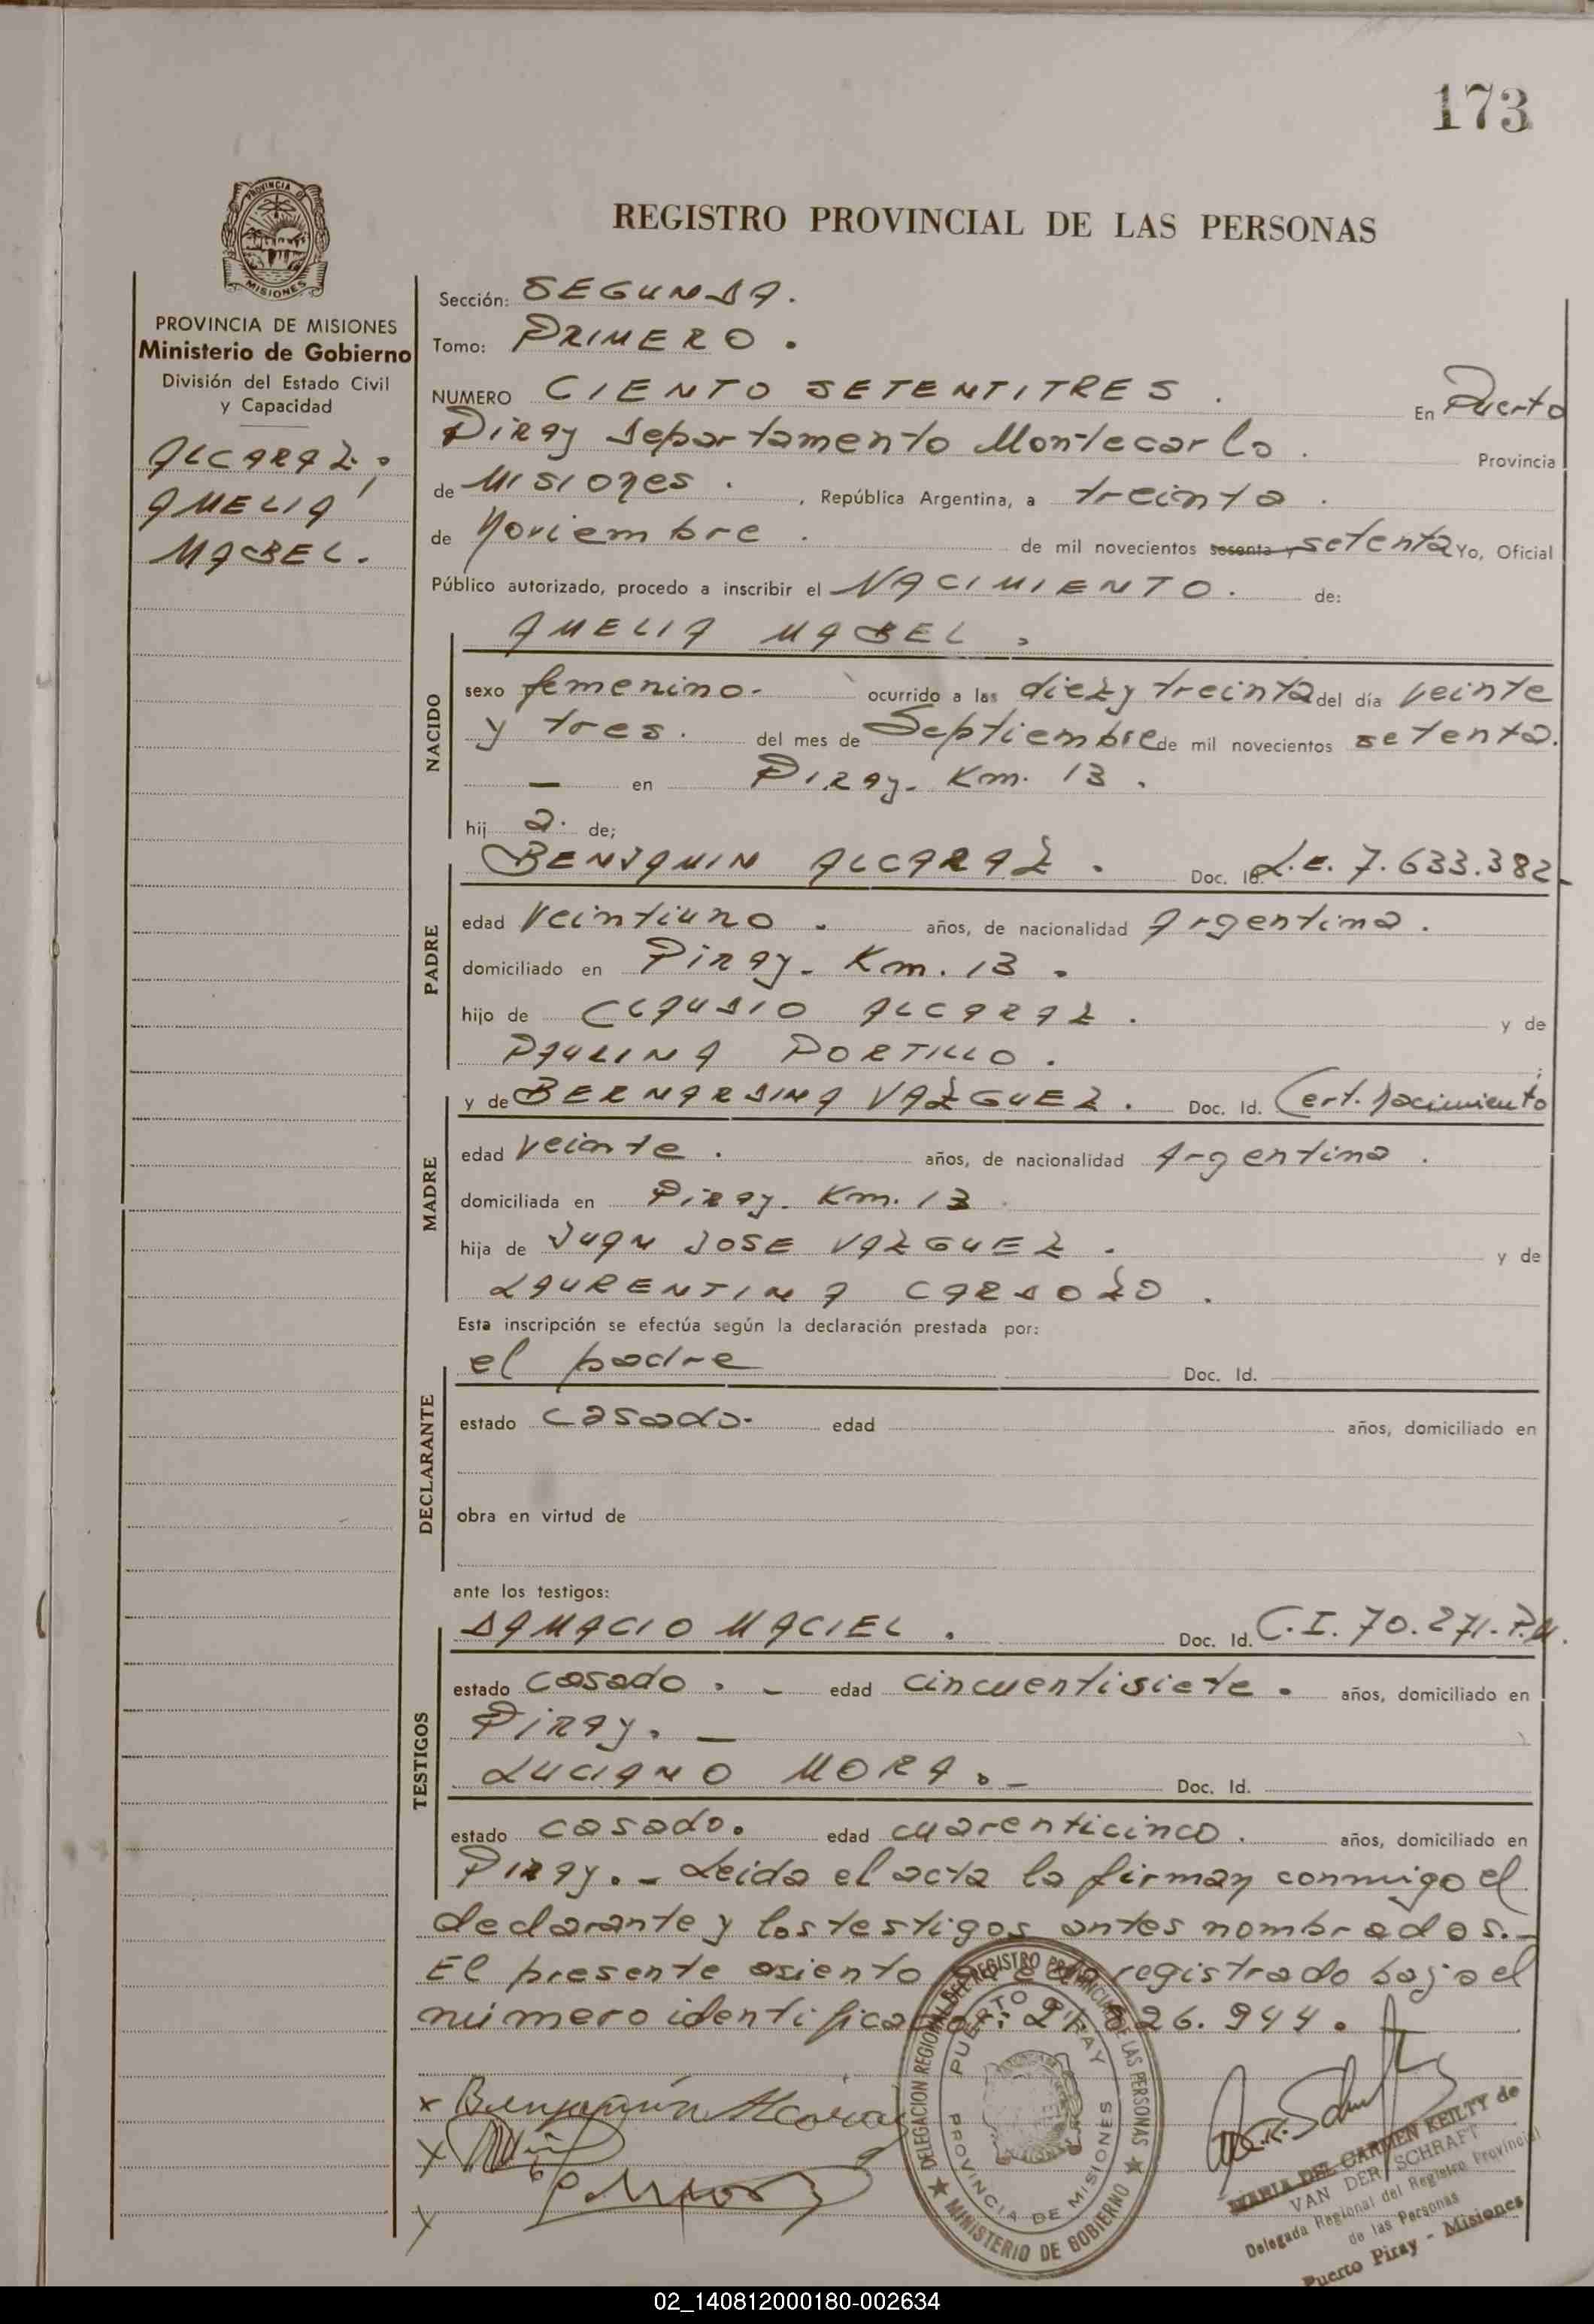 173
PROVINCIA DE
MISIONES
REGISTRO PROVINCIAL DE LAS PERSONAS
PROVINCIA DE MISIONES
Ministerio de Gobierno
División del Estado Civil
y Capacidad
ALCARAZ;
AMELIA
MABEL.
Sección: SEGUNDA.
Tomo: PRIMERO.
NUMERO CIENTO SETENTITRES. En Puerto
Piray departamento Montecarlo. Provincia
de Misiones., República Argentina, a treinta.
de Noviembre. de mil novecientos sesenta y setenta Yo, Oficial
Público autorizado, procedo a inscribir el NACIMIENTO. de:
NACIDO
AMELIA MABEL.
sexo femenino.- ocurrido a las diez y treinta del día veinte
y tres. del mes de Septiembre de mil novecientos setenta.
— en Piray- Km. 13.
hij a. de;
PADRE
BENJAMIN ALCARAZ. Doc. Id. L.E. 7.633.382-
edad veintiuno. años, de nacionalidad Argentina.
domiciliado en Piray- Km. 13.
hijo de CLAUDIO ALCARAZ. y de
PAULINA PORTILLO. ;
MADRE
y de BERNARDINA VAZGUEZ. Doc. Id. Cert. nacimiento
edad veinte. años, de nacionalidad Argentina.
domiciliada en Piray- Km. 13
hija de JUAN JOSE VAZGUEZ. y de
LAURENTINA CARDOZO.
Esta inscripción se efectúa según la declaración prestada por:
DECLARANTE
el padre Doc. Id.
estado casado.- edad años, domiciliado en
obra en virtud de
ante los testigos:
TESTIGOS
DAMACIO MACIEL. Doc. Id. C.I. 70.271.P.M.
estado casado. - edad cincuentisiete. años, domiciliado en
Piray. —
LUCIANO MORA.- Doc. Id.
estado casado. edad cuarenticinco. años, domiciliado en
Piray.- Leida el acta la firman conmigo el
declarante y los testigos antes nombrados.-
El presente asiento queda registrado bajo el
número identificador: 21.826.944.
x Benjamín Alcaraz
x
x
DELEGACION REGIONAL DEL REGISTRO PROVINCIAL DE LAS PERSONAS
PUERTO PIRAY
PROVINCIA DE MISIONES
★ MINISTERIO DE GOBIERNO ★
MARIA DEL CARMEN KEILTY de
VAN DER SCHRAFT
Delegada Regional del Registro Provincial
de las Personas
Puerto Piray - Misiones
02_140812000180-002634